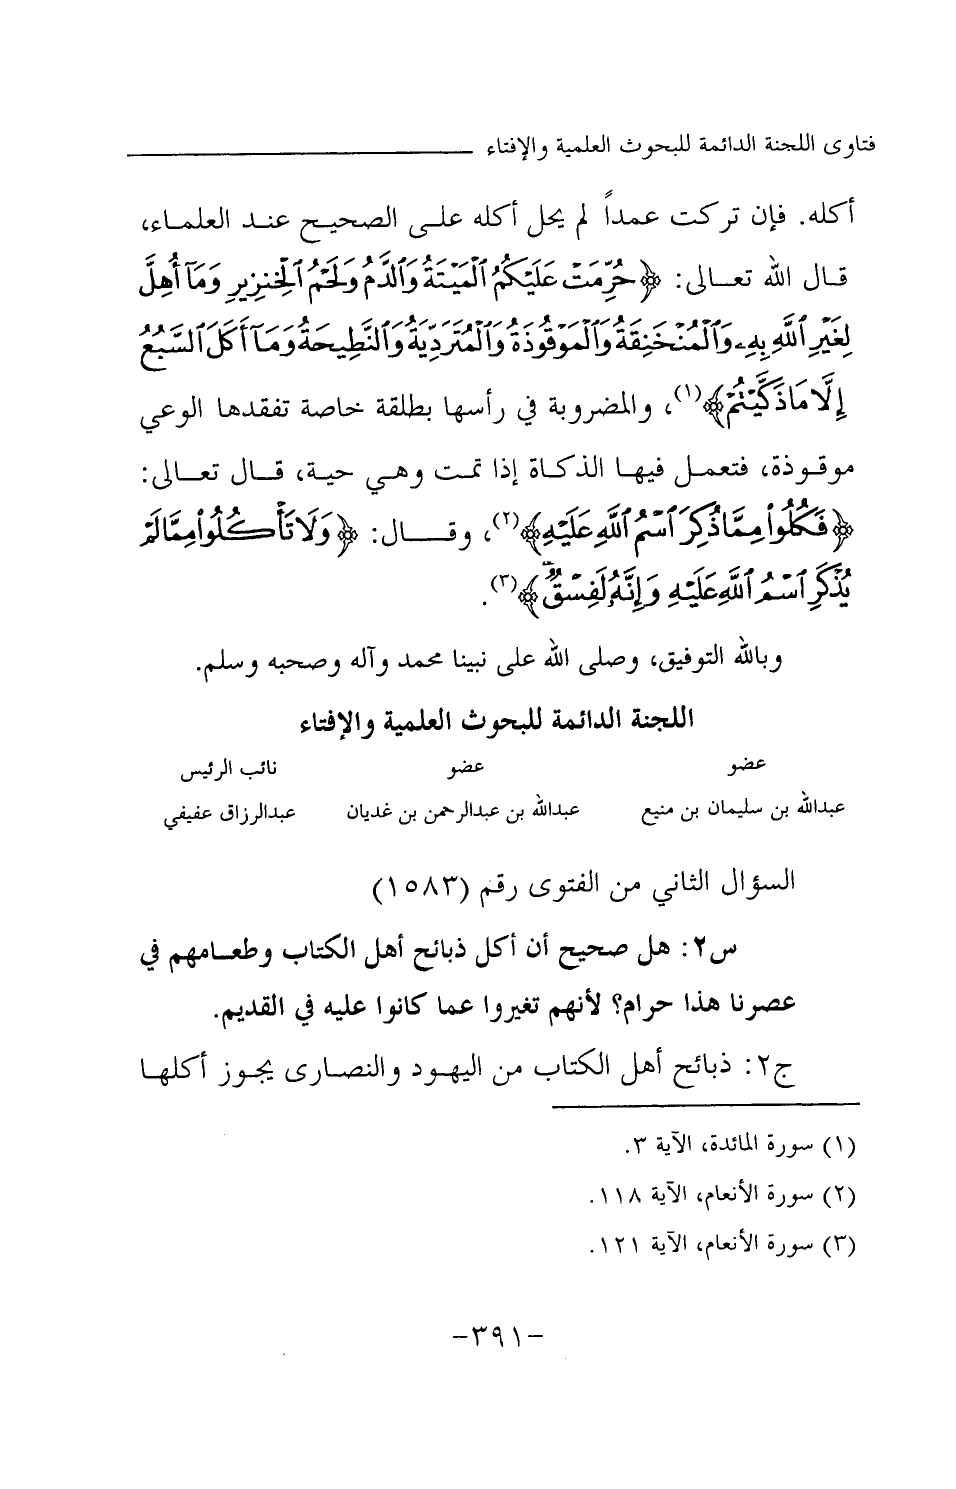 فتاوى اللجنة الدائمة للبحوث العلمية والإفتاء
أكله. فإن تركت عمداً لم يحل أكله على الصحيح عند العلماء،
قال الله تعالى: ﴿حُرِّمَتْ عَلَيْكُمُ ٱلْمَيْتَةُ وَٱلدَّمُ وَلَحْمُ ٱلْخِنزِيرِ وَمَآ أُهِلَّ
لِغَيْرِ ٱللَّهِ بِهِۦ وَٱلْمُنْخَنِقَةُ وَٱلْمَوْقُوذَةُ وَٱلْمُتَرَدِّيَةُ وَٱلنَّطِيحَةُ وَمَآ أَكَلَ ٱلسَّبُعُ
إِلَّا مَا ذَكَّيْتُمْ﴾(١)، والمضروبة في رأسها بطلقة خاصة تفقدها الوعي
موقوذة، فتعمل فيها الذكاة إذا تمت وهي حية، قال تعالى:
﴿فَكُلُوا۟ مِمَّا ذُكِرَ ٱسْمُ ٱللَّهِ عَلَيْهِ﴾(٢)، وقال: ﴿وَلَا تَأْكُلُوا۟ مِمَّا لَمْ
يُذْكَرِ ٱسْمُ ٱللَّهِ عَلَيْهِ وَإِنَّهُۥ لَفِسْقٌ ۗ﴾(٣).
وبالله التوفيق، وصلى الله على نبينا محمد وآله وصحبه وسلم.
اللجنة الدائمة للبحوث العلمية والإفتاء
عضو عضو نائب الرئيس
عبدالله بن سليمان بن منيع عبدالله بن عبدالرحمن بن غديان عبدالرزاق عفيفي
السؤال الثاني من الفتوى رقم (١٥٨٣)
س٢: هل صحيح أن أكل ذبائح أهل الكتاب وطعامهم في
عصرنا هذا حرام؟ لأنهم تغيروا عما كانوا عليه في القديم.
ج٢: ذبائح أهل الكتاب من اليهود والنصارى يجوز أكلها
(١) سورة المائدة، الآية ٣.
(٢) سورة الأنعام، الآية ١١٨.
(٣) سورة الأنعام، الآية ١٢١.
-٣٩١-